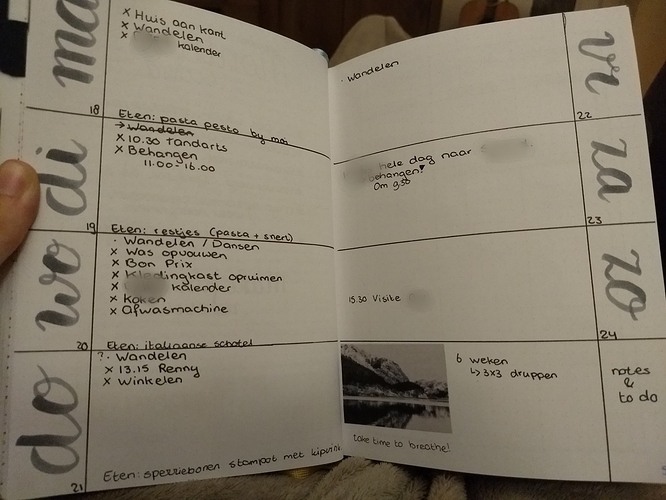 ma
x Huis aan kant
x Wandelen
x kalender
18
Eten: pasta pesto by moi
di
→ Wandelen
x 10.30 tandarts
x Behangen
11.00 - 16.00
19
Eten: restjes (pasta + snert)
wo
· Wandelen / Dansen
x Was opvouwen
x Bon Prix
x Kledingkast opruimen
x kalender
x Koken
x Afwasmachine
20
Eten: italiaanse schotel
do
?· Wandelen
x 13.15 Renny
x Winkelen
21
Eten: sperziebonen stampot met
vr
· Wandelen
22
za
hele dag naar
behangen!
Om 9.30
23
zo
15.30 Visite
24
6 weken
↳ 3x3 druppen
take time to breathe!
notes
&
to do